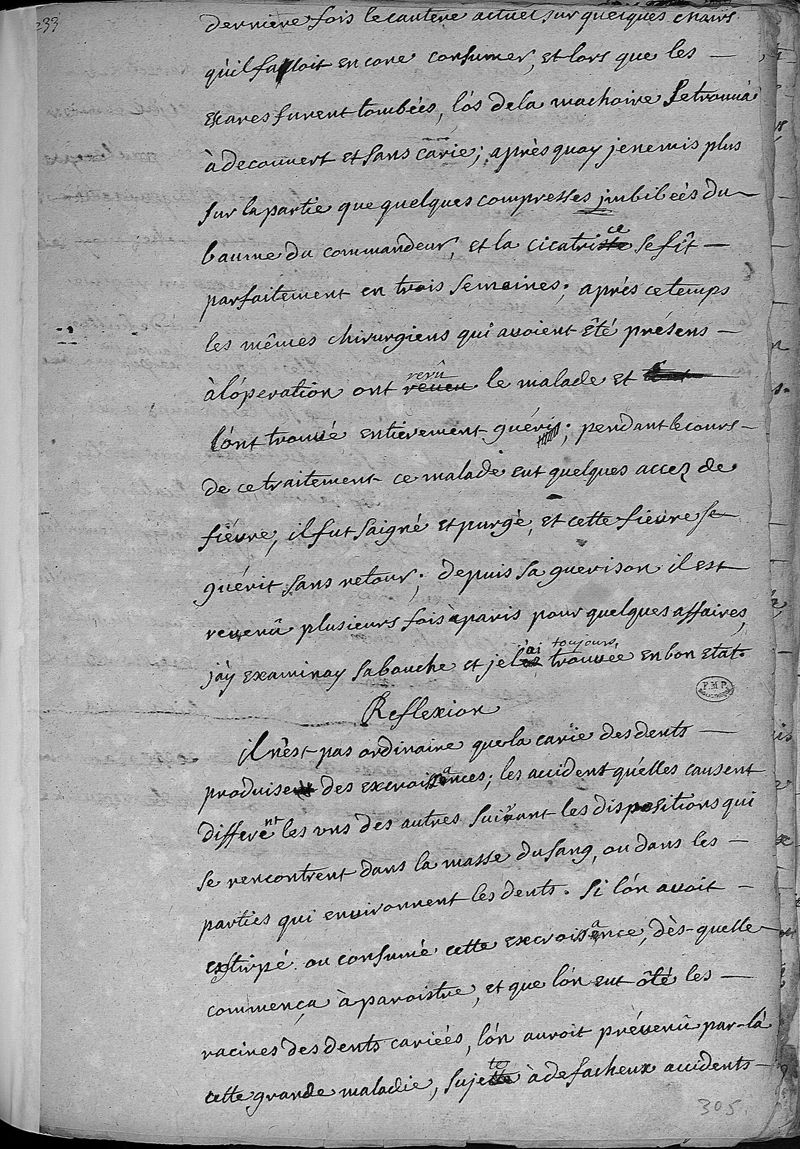 233
derniere fois le cautere actuel sur quelques chairs
qu'il falloit encore consumer, et lors que les
escares furent tombées, l'os de la machoire se trouva
à decouvert et sans carie; après quay je ne mis plus
sur la partie que quelques compresses jmbibéés du
baume du commandeur, et la cicatrice se fît
parfaitement en trois semaines; après ce temps
les mêmes chirurgiens qui avoient êté présens
à l'óperation ont revû le malade et
l'ónt trouvé entierement guéri; pendant le cours
de ce traitement ce malade eut quelques accez de
fiévre, il fut saigné et purgé, et cette fievre se
guérit sans retour; depuis sa guerison il est
revenû plusieurs fois à paris pour quelques affaires,
j'ay examinay sa bouche et je l'ai toujours trouvée en bon etat.
F.M.P.
Reflexion
il n'est pas ordinaire que la carie des dents
produise des excroissances; les accident qu'elles causent
different les uns des autres suivant les dispositions qui
se rencontrent dans la masse du sang, ou dans les
parties qui environnent les dents. Si l'ón avoit
extirpé ou consumé cette excroissance, dès-quelle
commença à paroistre, et que l'ón eut ôté les
racines des dents cariéés, l'ón auroit prévenû par-là
cette grande maladie, sujette à de facheux accidents
305